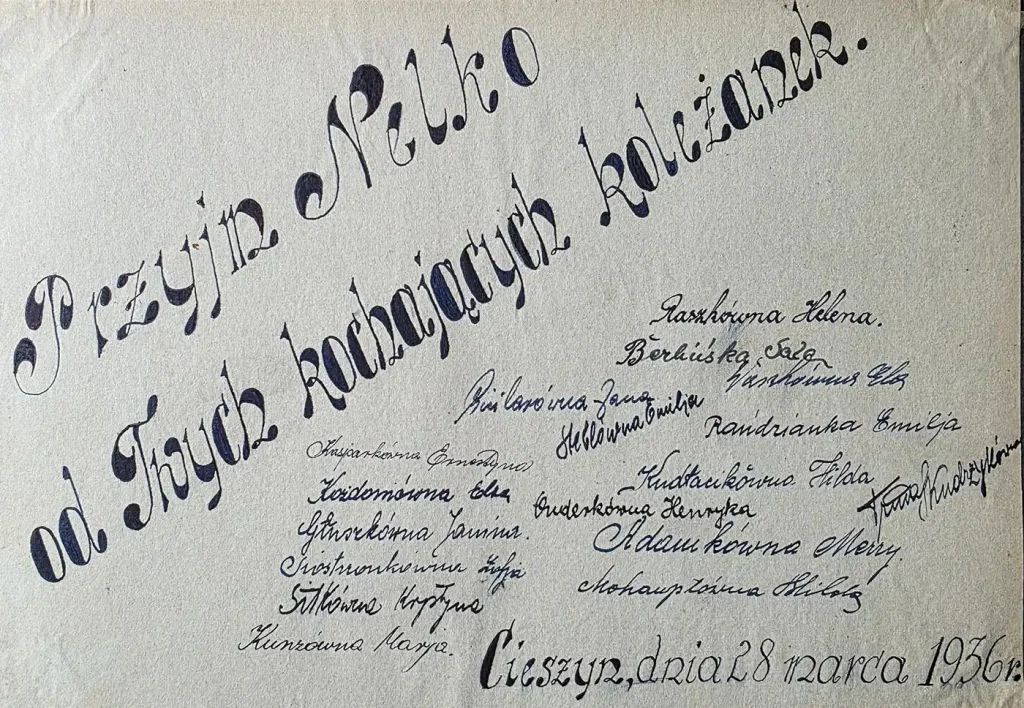 Przyjm Nelko
od Twych kochających koleżanek.
Raszkówna Helena.
Berlińska
Jana
Heblówna Emilja
Raúdzianka Emilja
Kasparkówna Ernestyna
Kudłacikówna Hilda
Kożdoniówna Elza
Onderkówna Henryka
Głuszkówna Janina.
Adamkówna Merry.
Siostrzonkówna Zofja
Mohauptówna Hilda
Sitkówna Krystyna
Kunzówna Marja.
Cieszyn, dnia 28 marca 1936 r.